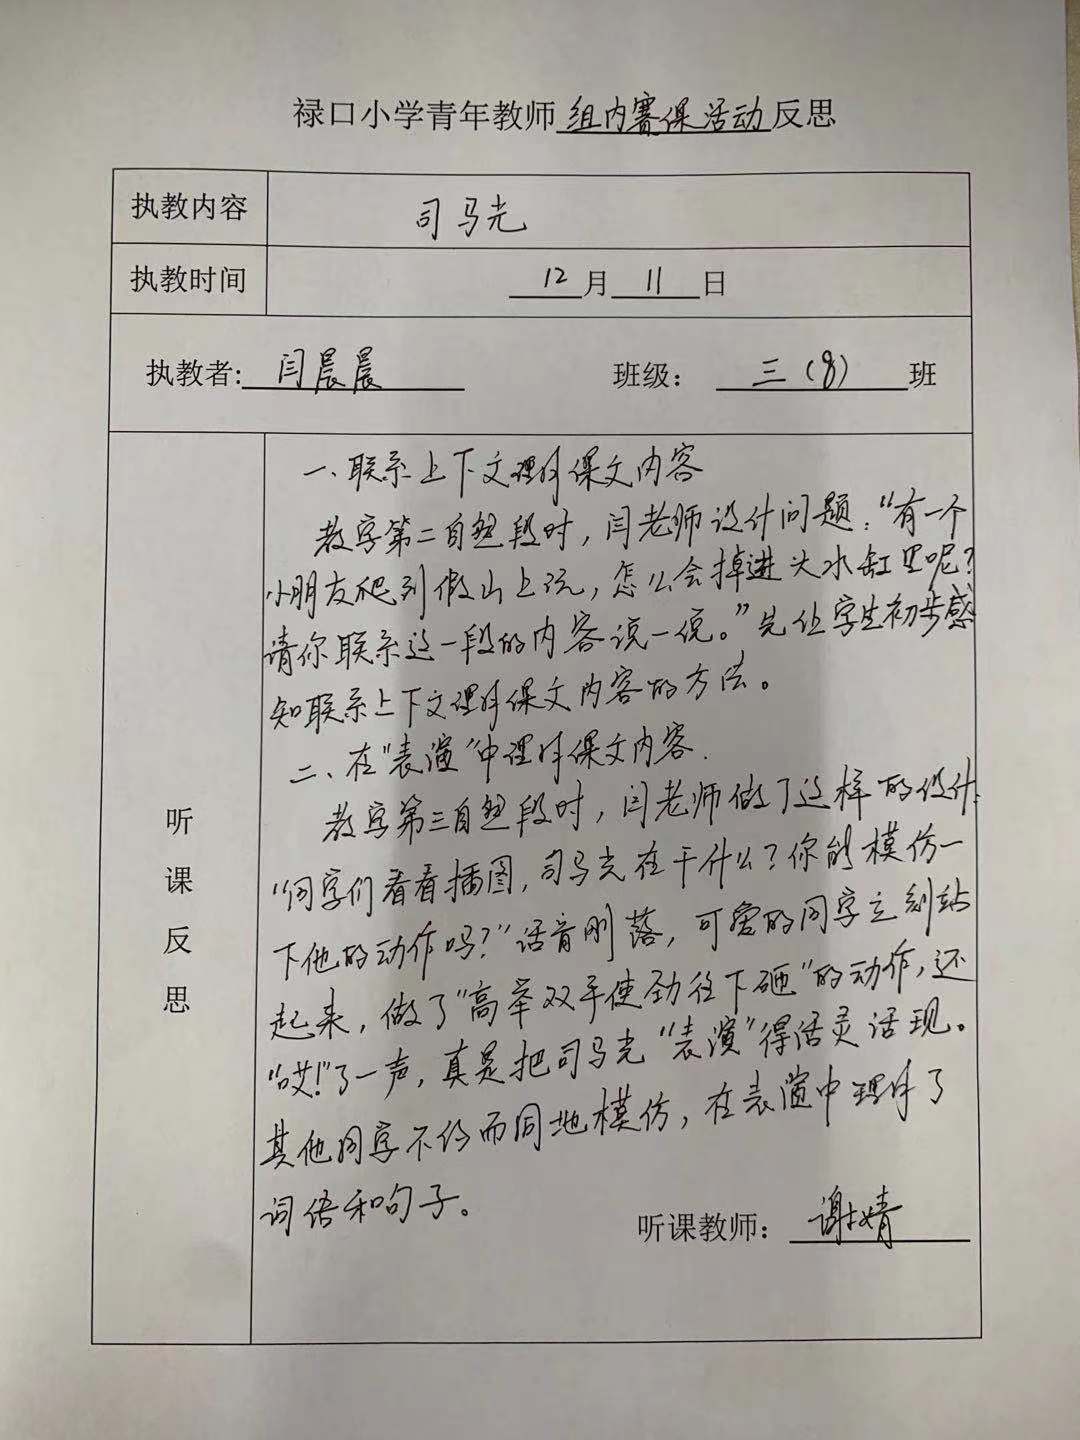 禄口小学青年教师组内赛课活动反思
执教内容 司马光
执教时间 12月11日
执教者:闫晨晨 班级：三(8)班
听课反思
一、联系上下文理解课文内容
教学第二自然段时，闫老师设计问题：“有一个
小朋友爬到假山上玩，怎么会掉进大水缸里呢？
请你联系这一段的内容说一说。”先让学生初步感
知联系上下文理解课文内容的方法。
二、在“表演”中理解课文内容.
教学第三自然段时，闫老师做了这样的设计：
“同学们看看插图，司马光在干什么？你能模仿一
下他的动作吗？”话音刚落，可爱的同学立刻站
起来，做了“高举双手使劲往下砸”的动作，还
“哎！”了一声，真是把司马光“表演”得活灵活现。
其他同学不约而同地模仿，在表演中理解了
词语和句子。
听课教师：谢婧